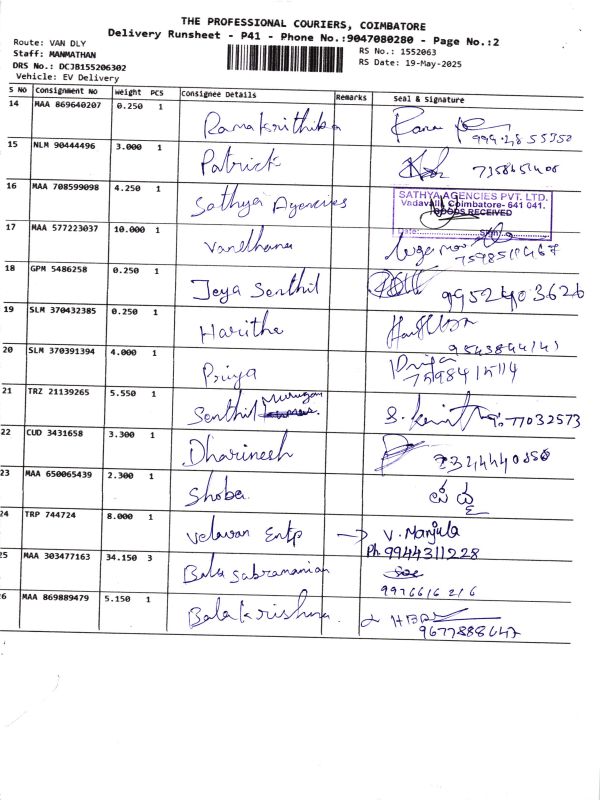 THE PROFESSIONAL COURIERS, COIMBATORE
Delivery Runsheet - P41 - Phone No.:9047080280 - Page No.:2
Route: VAN DLY
Staff: MANMATHAN
DRS No.: DCJB155206302
Vehicle: EV Delivery
RS No.: 1552063
RS Date: 19-May-2025
S No Consignment No Weight PCS Consignee Details Remarks Seal & Signature
14 MAA 869640207 0.250 1 Ramakrithika
15 NLM 90444496 3.000 1 Patrick
16 MAA 708599098 4.250 1 Sathya Agencies
SATHYA AGENCIES PVT. LTD.
Vadavalli, Coimbatore- 641 041.
GOODS RECEIVED
Date:
17 MAA 577223037 10.000 1 Vandhana
18 GPM 5486258 0.250 1 Jeya Senthil 9952403626
19 SLM 370432385 0.250 1 Haritha
20 SLM 370391394 4.000 1 Priya Priya
21 TRZ 21139265 5.550 1 Senthil Murugan
22 CUD 3431658 3.300 1 Dharineesh
23 MAA 650065439 2.300 1 Shoba
24 TRP 744724 8.000 1 Velavan Entp → V. Manjula
Ph 9944311228
25 MAA 303477163 34.150 3 Bala Subramanian
9976616216
26 MAA 869889479 5.150 1 Bala Krishna